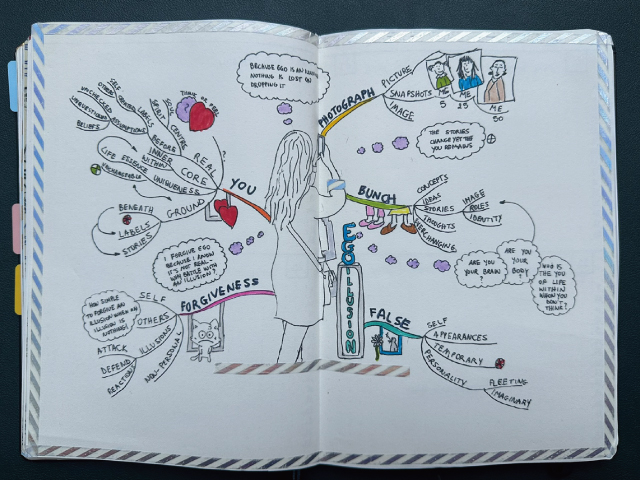 BECAUSE EGO IS AN
NOTHING IS LOST ON
DROPPING IT
PHOTOGRAPH
PICTURE
SNAPSHOTS
IMAGE
ME
5
ME
25
ME
50
THE STORIES
CHANGE YET THE
YOU REMAINS
BUNCH
CONCEPTS
IDEAS
STORIES
THOUGHTS
IMAGE
ROLES
IDENTITY
ARE YOU
YOUR BRAIN?
ARE YOU
YOUR
BODY
?
WHO IS
THE YOU
OF LIFE
WITHIN
WHOM YOU
DON'T
THINK?
EGO
ILLUSION
FALSE
SELF
APPEARANCES
TEMPORARY
PERSONALITY
FLEETING
IMAGINARY
YOU
REAL
CORE
GROUND
THINK OR FEEL
SOUL
SPIRIT
CENTRE
BEFORE
INNER
WITHIN
LABELS
ASSUMPTIONS
BELIEFS
LIFE ESSENCE
UNIQUENESS
UNCHANGEABLE
BENEATH
LABELS
STORIES
I FORGIVE EGO
BECAUSE I KNOW
IT'S NOT REAL
WHY BATTLE WITH
AN ILLUSION?
FORGIVENESS
SELF
OTHERS
ILLUSIONS
NON-PERSONAL
HOW SIMPLE
TO FORGIVE AN
ILLUSION WHEN AN
ILLUSION IS
NOTHING!
ATTACK
DEFEND
REACTION